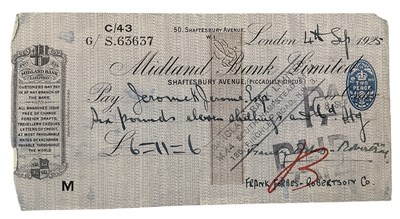 C/43
50. SHAFTESBURY AVENUE,
W.
G/ S.63637
London 4th Sp 1925
MIDLAND BANK
LIMITED
Midland Bank Limited
SHAFTESBURY AVENUE, PICCADILLY CIRCUS
CUSTOMERS MAY PAY
IN AT ANY BRANCH OF
THE BANK.
ALL BRANCHES ISSUE
FREE OF CHARGE
FOREIGN DRAFTS
TRAVELLERS CHEQUES
LETTERS OF CREDIT
AT MOST FAVOURABLE
RATES OF EXCHANGE
PAYABLE THROUGHOUT
THE WORLD
Pay Jerome K Jerome, Esqre
Six pounds eleven shillings and 6d
£6=11=6
M
FRANK FORBES-ROBERTSON Co.